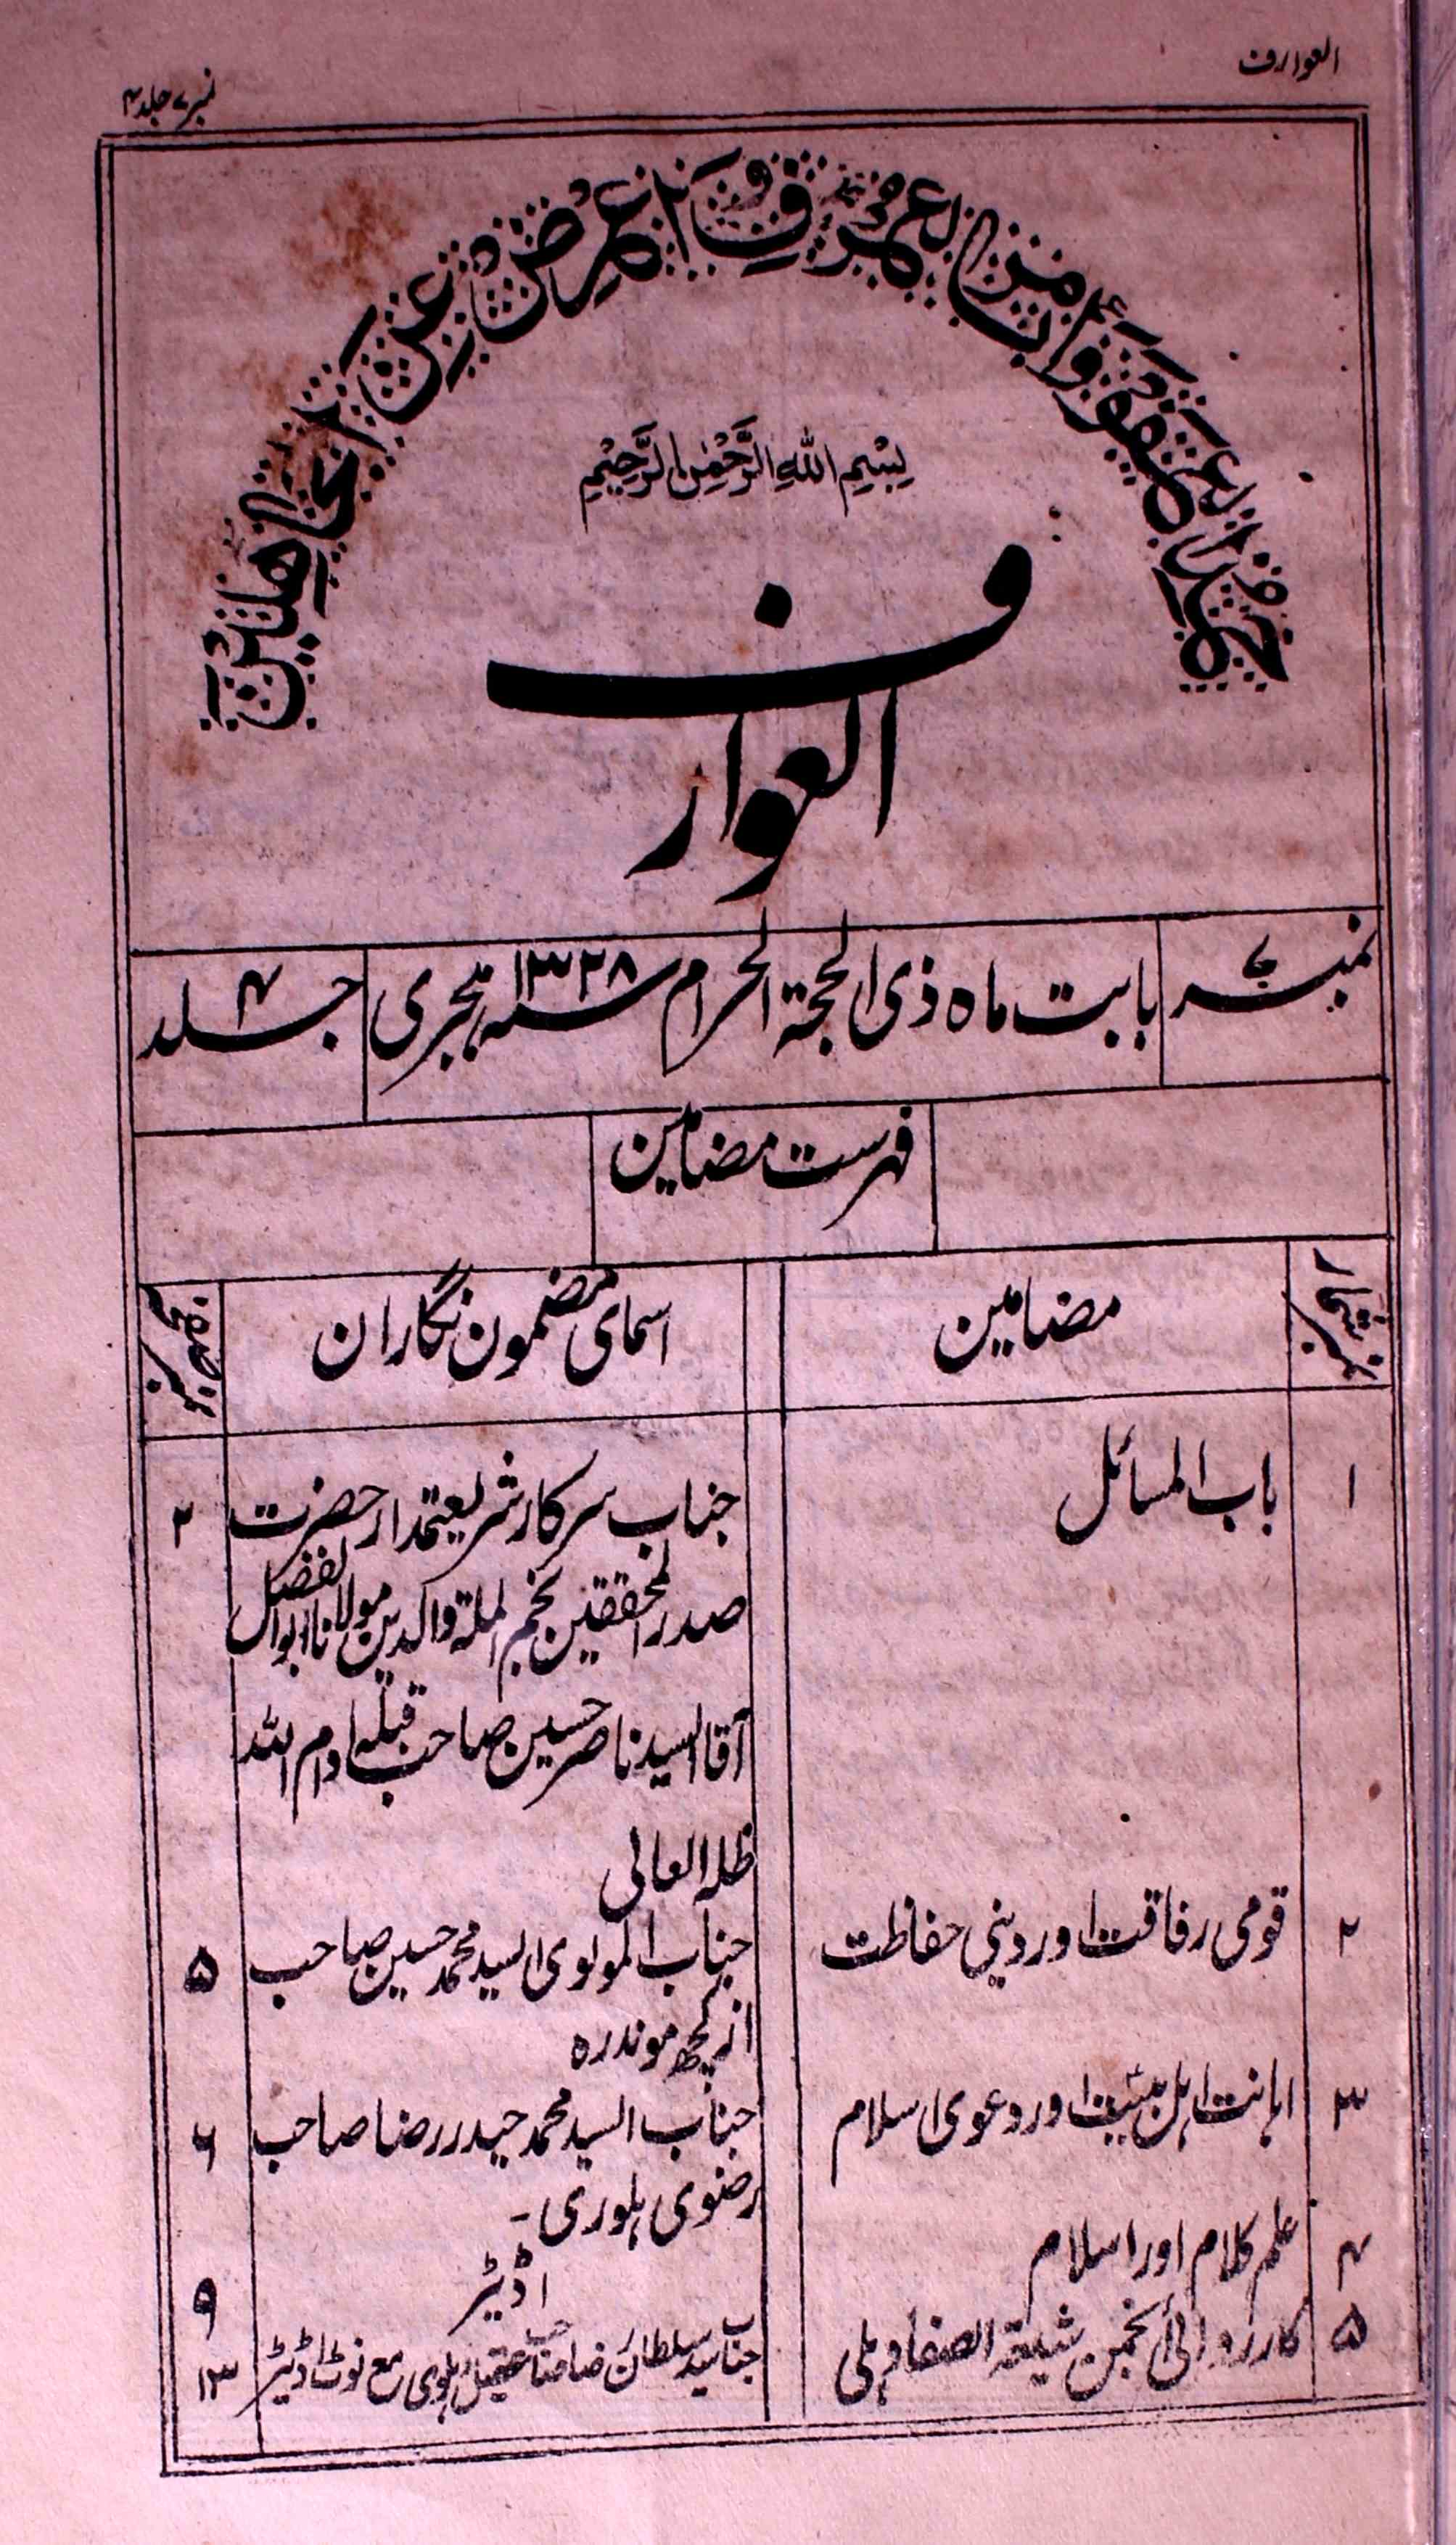 العوارف
نمبر ۷ جلد ۴
خُذِ الْعَفْوَ وَأْمُرْ بِالْعُرْفِ وَأَعْرِضْ عَنِ الْجَاهِلِيْنَ
بِسْمِ اللهِ الرَّحْمٰنِ الرَّحِيْمِ
العوارف
نمبر ۷ بابت ماہ ذی الحجۃ الحرام سنہ ۱۳۲۸ ہجری جلد ۴
فہرست مضامین
نمبر شمار مضامین اسمای مضمون نگاران نمبر صفحہ
۱ باب المسائل جناب سرکار شریعتمدار حضرت ۲
صدر المحققین نجم الملۃ والدین مولانا ابو الفضل
آقا السید ناصر حسین صاحب قبلہ ادام اللہ
ظلہ العالی
۲ قومی رفاقت اور دینی حفاظت جناب المولوی السید محمد حسین صاحب ۵
از کچھ موندرہ
۳ اہانت اہل بیت اور دعوی اسلام جناب السید محمد حیدر رضا صاحب ۶
رضوی ہلوری -
۴ علم کلام اور اسلام اڈیٹر ۹
۵ کارروائی انجمن شیعۃ الصفا دہلی جناب سید سلطان رضا صاحب دہلوی مع نوٹ اڈیٹر ۱۳